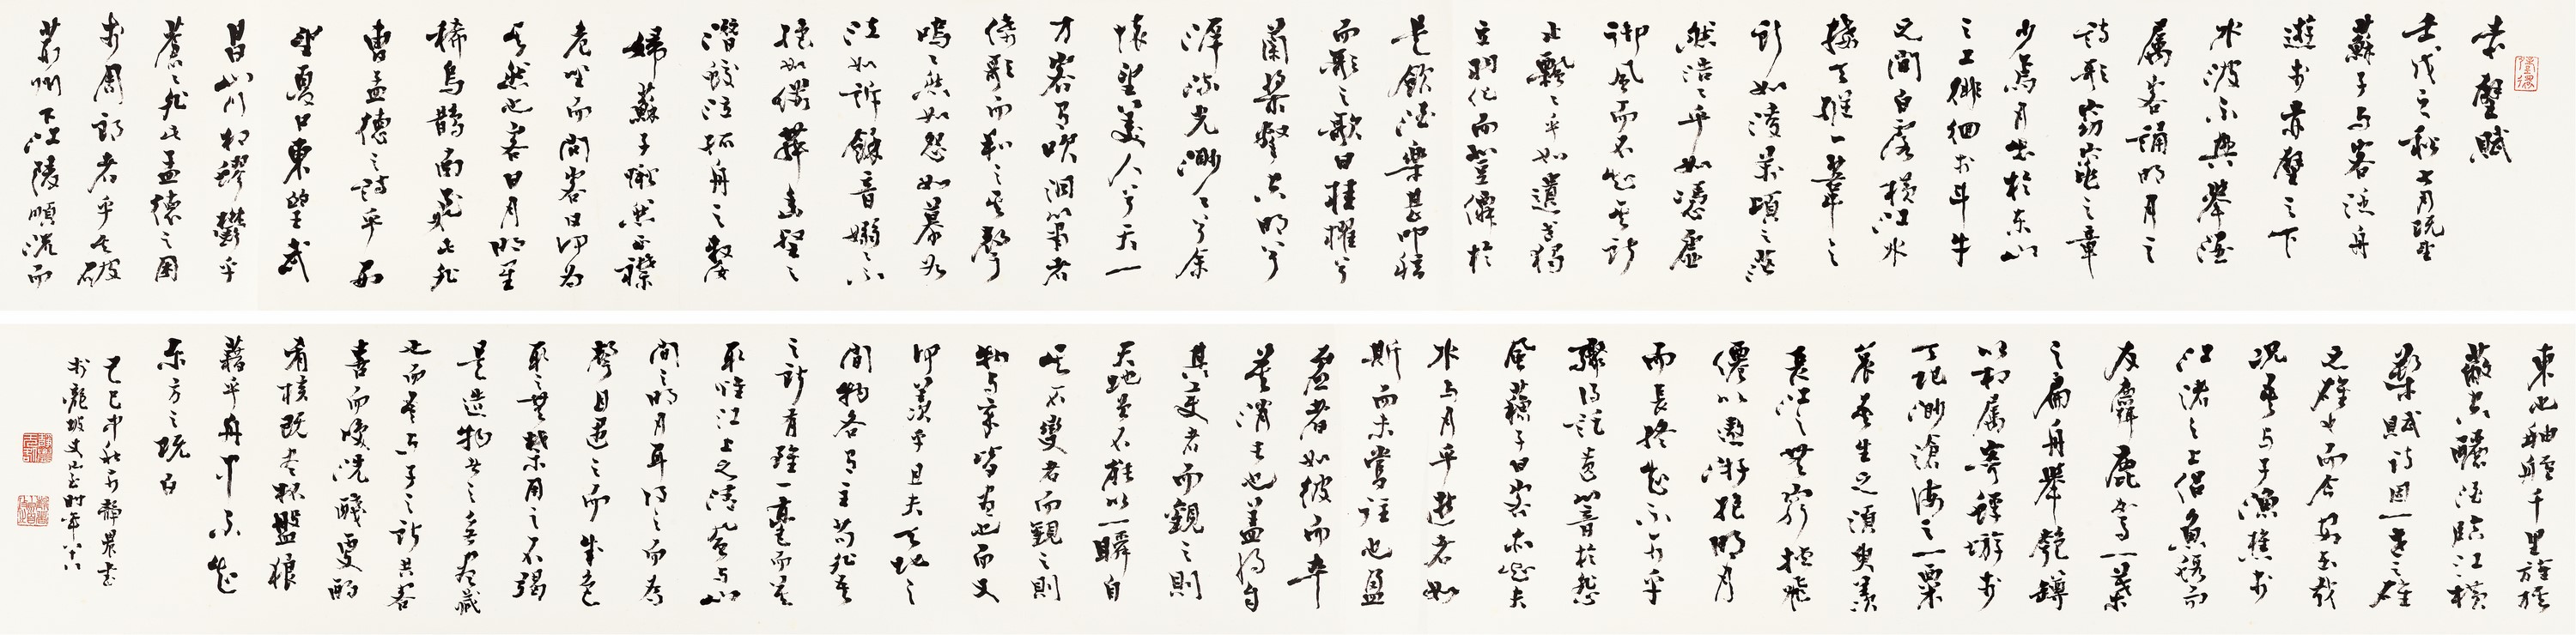 赤壁賦
壬戌之秋七月既望
蘇子與客泛舟
遊於赤壁之下
水波不興舉酒
屬客誦明月之
詩歌窈窕之章
少焉月出於東山
之上徘徊於斗牛
之間白露橫江水
接天縱一葦之
所如凌萬頃之茫
然浩浩乎如憑虛
御風而不知其所
止飄飄乎如遺世獨
立羽化而登僊於
是飲酒樂甚叩舷
而歌之歌曰桂櫂兮
蘭槳擊空明兮
溯流光渺渺兮余
懷望美人兮天一
方客有吹洞簫者
倚歌而和之其聲
嗚嗚然如怨如慕如
泣如訴餘音嫋嫋不
絕如縷舞幽壑之
潛蛟泣孤舟之嫠
婦蘇子愀然正襟
危坐而問客曰何為
其然也客曰月明星
稀烏鵲南飛此非
曹孟德之詩乎西
望夏口東望武
昌山川相繆鬱乎
蒼蒼此非孟德之困
於周郎者乎方其破
荊州下江陵順流而
東也舳艫千里旌旗
蔽空釃酒臨江橫
槊賦詩固一世之雄
也而今安在哉
況吾與子漁樵於
江渚之上侶魚蝦而
友麋鹿駕一葉
之扁舟舉匏樽
以相屬寄蜉蝣於
天地渺滄海之一粟
哀吾生之須臾羨
長江之無窮挾飛
僊以遨游抱明月
而長終知不可乎
驟得託遺響於悲
風蘇子曰客亦知夫
水與月乎逝者如
斯而未嘗往也盈
虛者如彼而卒
莫消長也蓋將自
其變者而觀之則
天地曾不能以一瞬自
其不變者而觀之則
物與我皆無盡也而又
何羨乎且夫天地之
間物各有主苟非吾
之所有雖一毫而莫
取惟江上之清風與山
間之明月耳得之而為
聲目遇之而成色
取之無禁用之不竭
是造物者之無盡藏
也而吾與子之所共客
喜而笑洗盞更酌
肴核既盡杯盤狼
藉乎舟中不知
東方之既白
己巳中秋前靜農書
於龍坡丈室時年八八